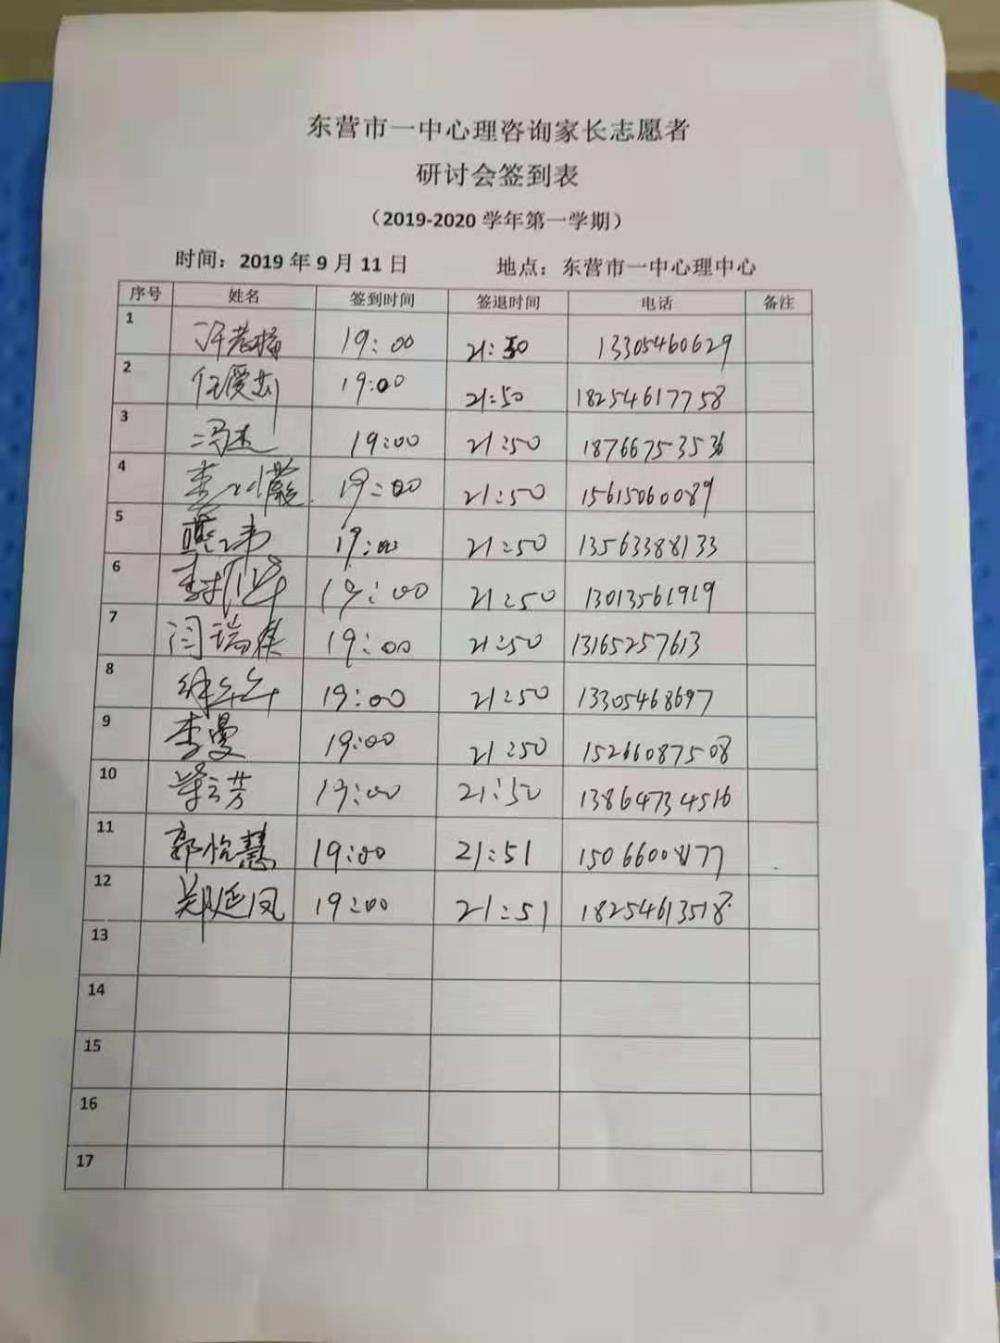 东营市一中心理咨询家长志愿者
研讨会签到表
（2019-2020 学年第一学期）
时间：2019 年 9 月 11 日 地点：东营市一中心理中心
序号 姓名 签到时间 签退时间 电话 备注
1 19:00 21:50 13305460629
2 19:00 21:50 18254617758
3 冯杰 19:00 21:50 18766753536
4 19:00 21:50 15615060089
5 19:00 21:50 13563388133
6 19:00 21:50 13013561919
7 闫瑞集 19:00 21:50 13165257613
8 19:00 21:50 13305468697
9 李曼 19:00 21:50 15266087508
10 19:00 21:50 13864734516
11 郭怡慧 19:00 21:51 15066008177
12 郑延凤 19:00 21:51 18254613518
13
14
15
16
17